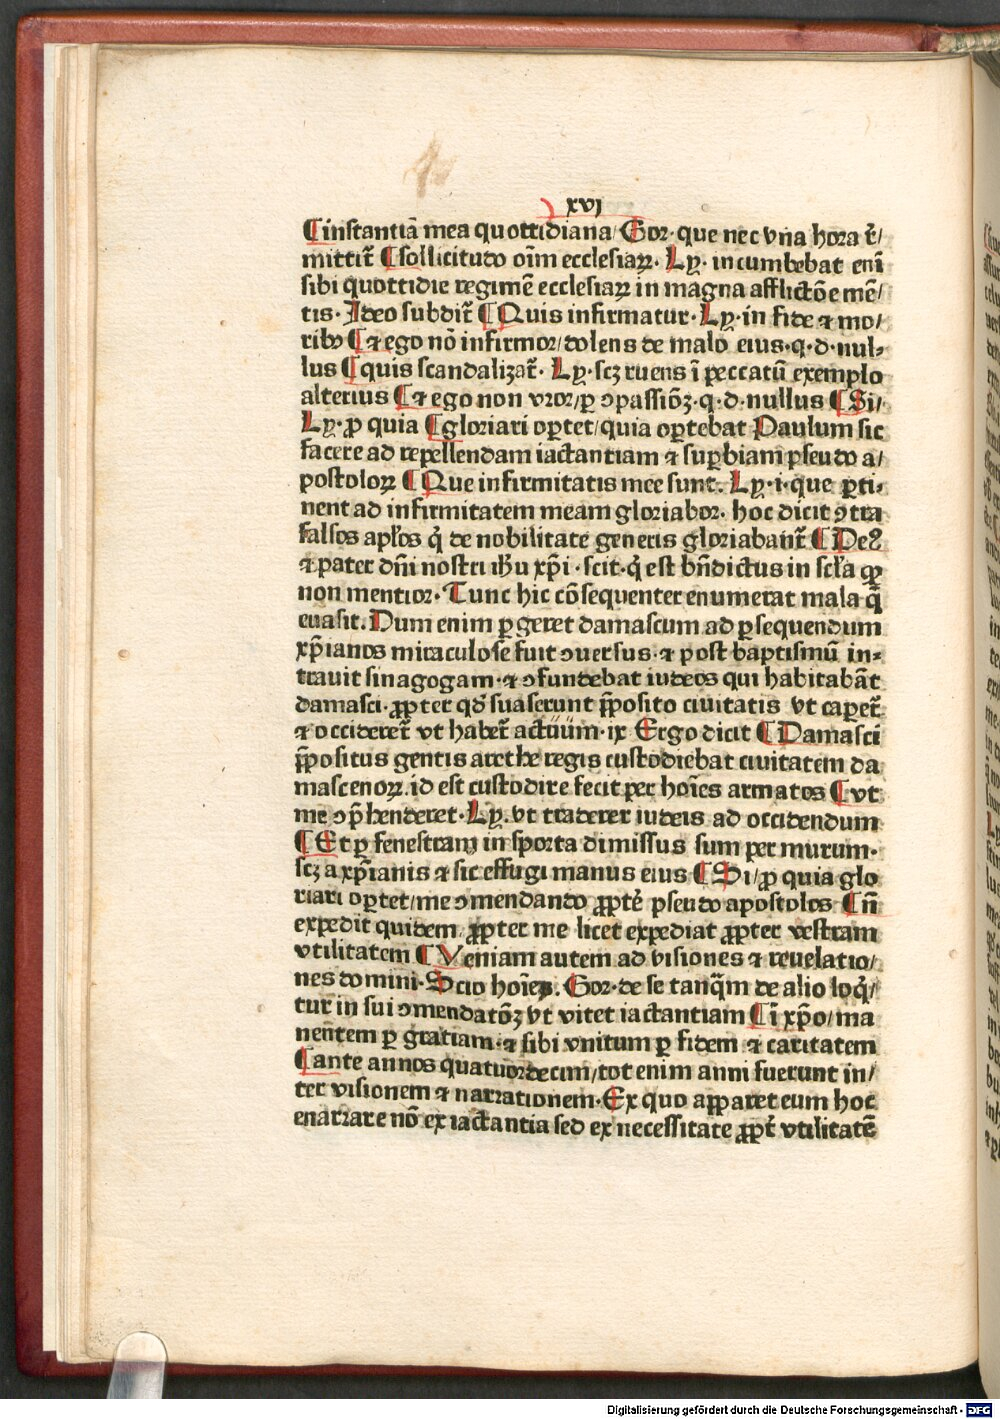 xvj
¶instantiā mea quottidiana/ Gor· que nec vna hora t̄/
mittit᷑ ¶sollicitudo oīm ecclesiaꝝ· Ly· incumbebat enī
sibi quottidie regimē ecclesiaꝝ in magna afflictōe mē/
tis· Ideo subdit᷑ ¶Quis infirmatur· Ly· in fide ⁊ mo/
ribꝰ ¶⁊ ego nō infirmor/dolens de malo eius·q·d·nul⸗
lus ¶quis scandalizat᷑· Ly·scꝫ ruens ī peccatū exemplo
alterius ¶⁊ ego non vror/ꝑ ↄpassiōꝫ·q·d·nullus ¶Si/
Ly·ꝓ quia ¶gloriari oꝑtet/quia oꝑtebat Paulum sic
facere ad repellendam iactantiam ⁊ suꝑbiam pseudo a/
postoloꝝ ¶Que infirmitatis mee sunt· Ly·i·que ꝑti⸗
nent ad infirmitatem meam gloriabor· hoc dicit ↄtra
falsos apl'os q̇ de nobilitate generis gloriabant᷑ ¶Deꝰ
⁊ pater dn̄i nostri ih̄u xp̄i ·scit·q̇ est bn̄dictus in scl'a ꝙ
non mentior· Tunc hic cōsequenter enumerat mala q̄
euasit· Dum enim ꝑgeret damascum ad ꝑsequendum
xp̄ianos miraculose fuit ↄuersus·⁊ post baptismū in⸗
trauit sinagogam·⁊ ↄfundebat iudeos qui habitabāt
damasci·ꝓpter qd̓ suaserunt p̄posito ciuitatis vt caꝑet᷑
⁊ occideret᷑ vt habet᷑ actuum·ix Ergo dicit ¶Damasci
p̄positus gentis arethe regis custodiebat ciuitatem da
mascenoꝝ·id est custodire fecit per hoīes armatos ¶vt
me ↄp̄henderet·Ly·vt traderer iudeis ad occidendum
¶Et ꝑ fenestram in sporta dimissus sum per murum·
scꝫ a xp̄ianis ⁊ sic effugi manus eius ¶Si/ꝓ quia glo
riari oꝑtet/me ↄmendando ꝓpt᷑ pseudo apostolos ¶n̄
expedit quidem ꝓpter me licet expediat ꝓpter vestram
vtilitatem ¶Veniam autem ad visiones ⁊ reuelatio/
nes domini·Scio hoīem· Gor·de se tanq̄m de alio loq̇/
tur in sui ↄmendatōꝫ vt vitet iactantiam ¶ī xp̄o/ma
nentem ꝑ gratiam·⁊ sibi vnitum ꝑ fidem ⁊ caritatem
¶ante annos quatuordecim/tot enim anni fuerunt in/
ter visionem ⁊ narrationem·Ex quo apparet eum hoc
enarrare nō ex iactantia sed ex necessitate ꝓpt᷑ vtilitatē
Digitalisierung gefördert durch die Deutsche Forschungsgemeinschaft - DFG